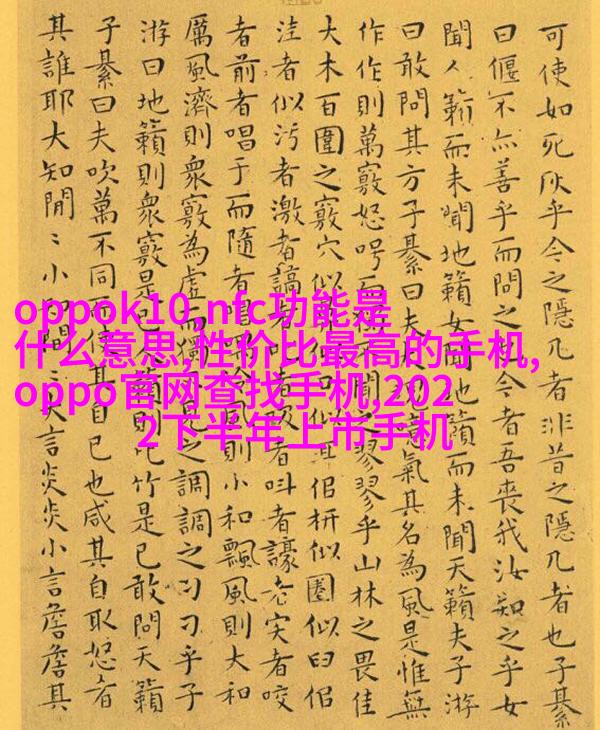 可使如死灰乎今之隱几者非昔之隱几者也子綦
曰偃不亦善乎而問之今者吾喪我汝知之乎女
聞人籟而未聞地籟女聞地籟而未聞天籟夫子游
曰敢問其方子綦曰夫大噫氣其名為風是惟無
作作則萬竅怒呺而聞之翏翏乎山林之畏佳
大木百圍之竅穴似似耳佀枅似圈似臼佀
洼者似污者激者謞者者叫者譹者宎者咬
者前者唱于而隨者唱風則小和飄風則大和
厲風濟則衆竅為虛而獨不見之調調之刁刁乎子
游曰地籟則衆竅是已籟則比竹是已敢問天籟
子綦曰夫吹萬不同而使其自己也咸其自取怒者
其誰耶大知閒〻小知間〻大言炎炎小言詹詹其
oppok10,nfc功能是
什么意思,性价比最高的手机,
oppo官网查找手机,202
2下半年上市手机